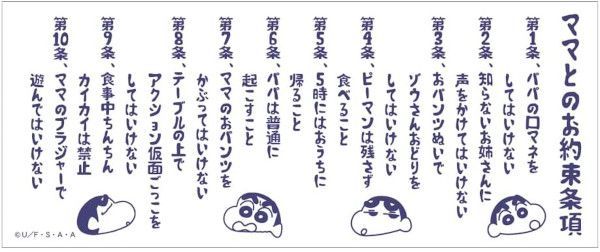 ママとのお約束条項
第1条、パパの口マネを
してはいけない
第2条、知らないお姉さんに
声をかけてはいけない
第3条、おパンツぬいで
ゾウさんおどりを
してはいけない
第4条、ピーマンは残さず
食べること
第5条、5時にはおうちに
帰ること
第6条、パパは普通に
起こすこと
第7条、ママのおパンツを
かぶってはいけない
第8条、テーブルの上で
アクション仮面ごっこを
してはいけない
第9条、食事中ちんちん
カイカイは禁止
第10条、ママのブラジャーで
遊んではいけない
©U/F・S・A・A